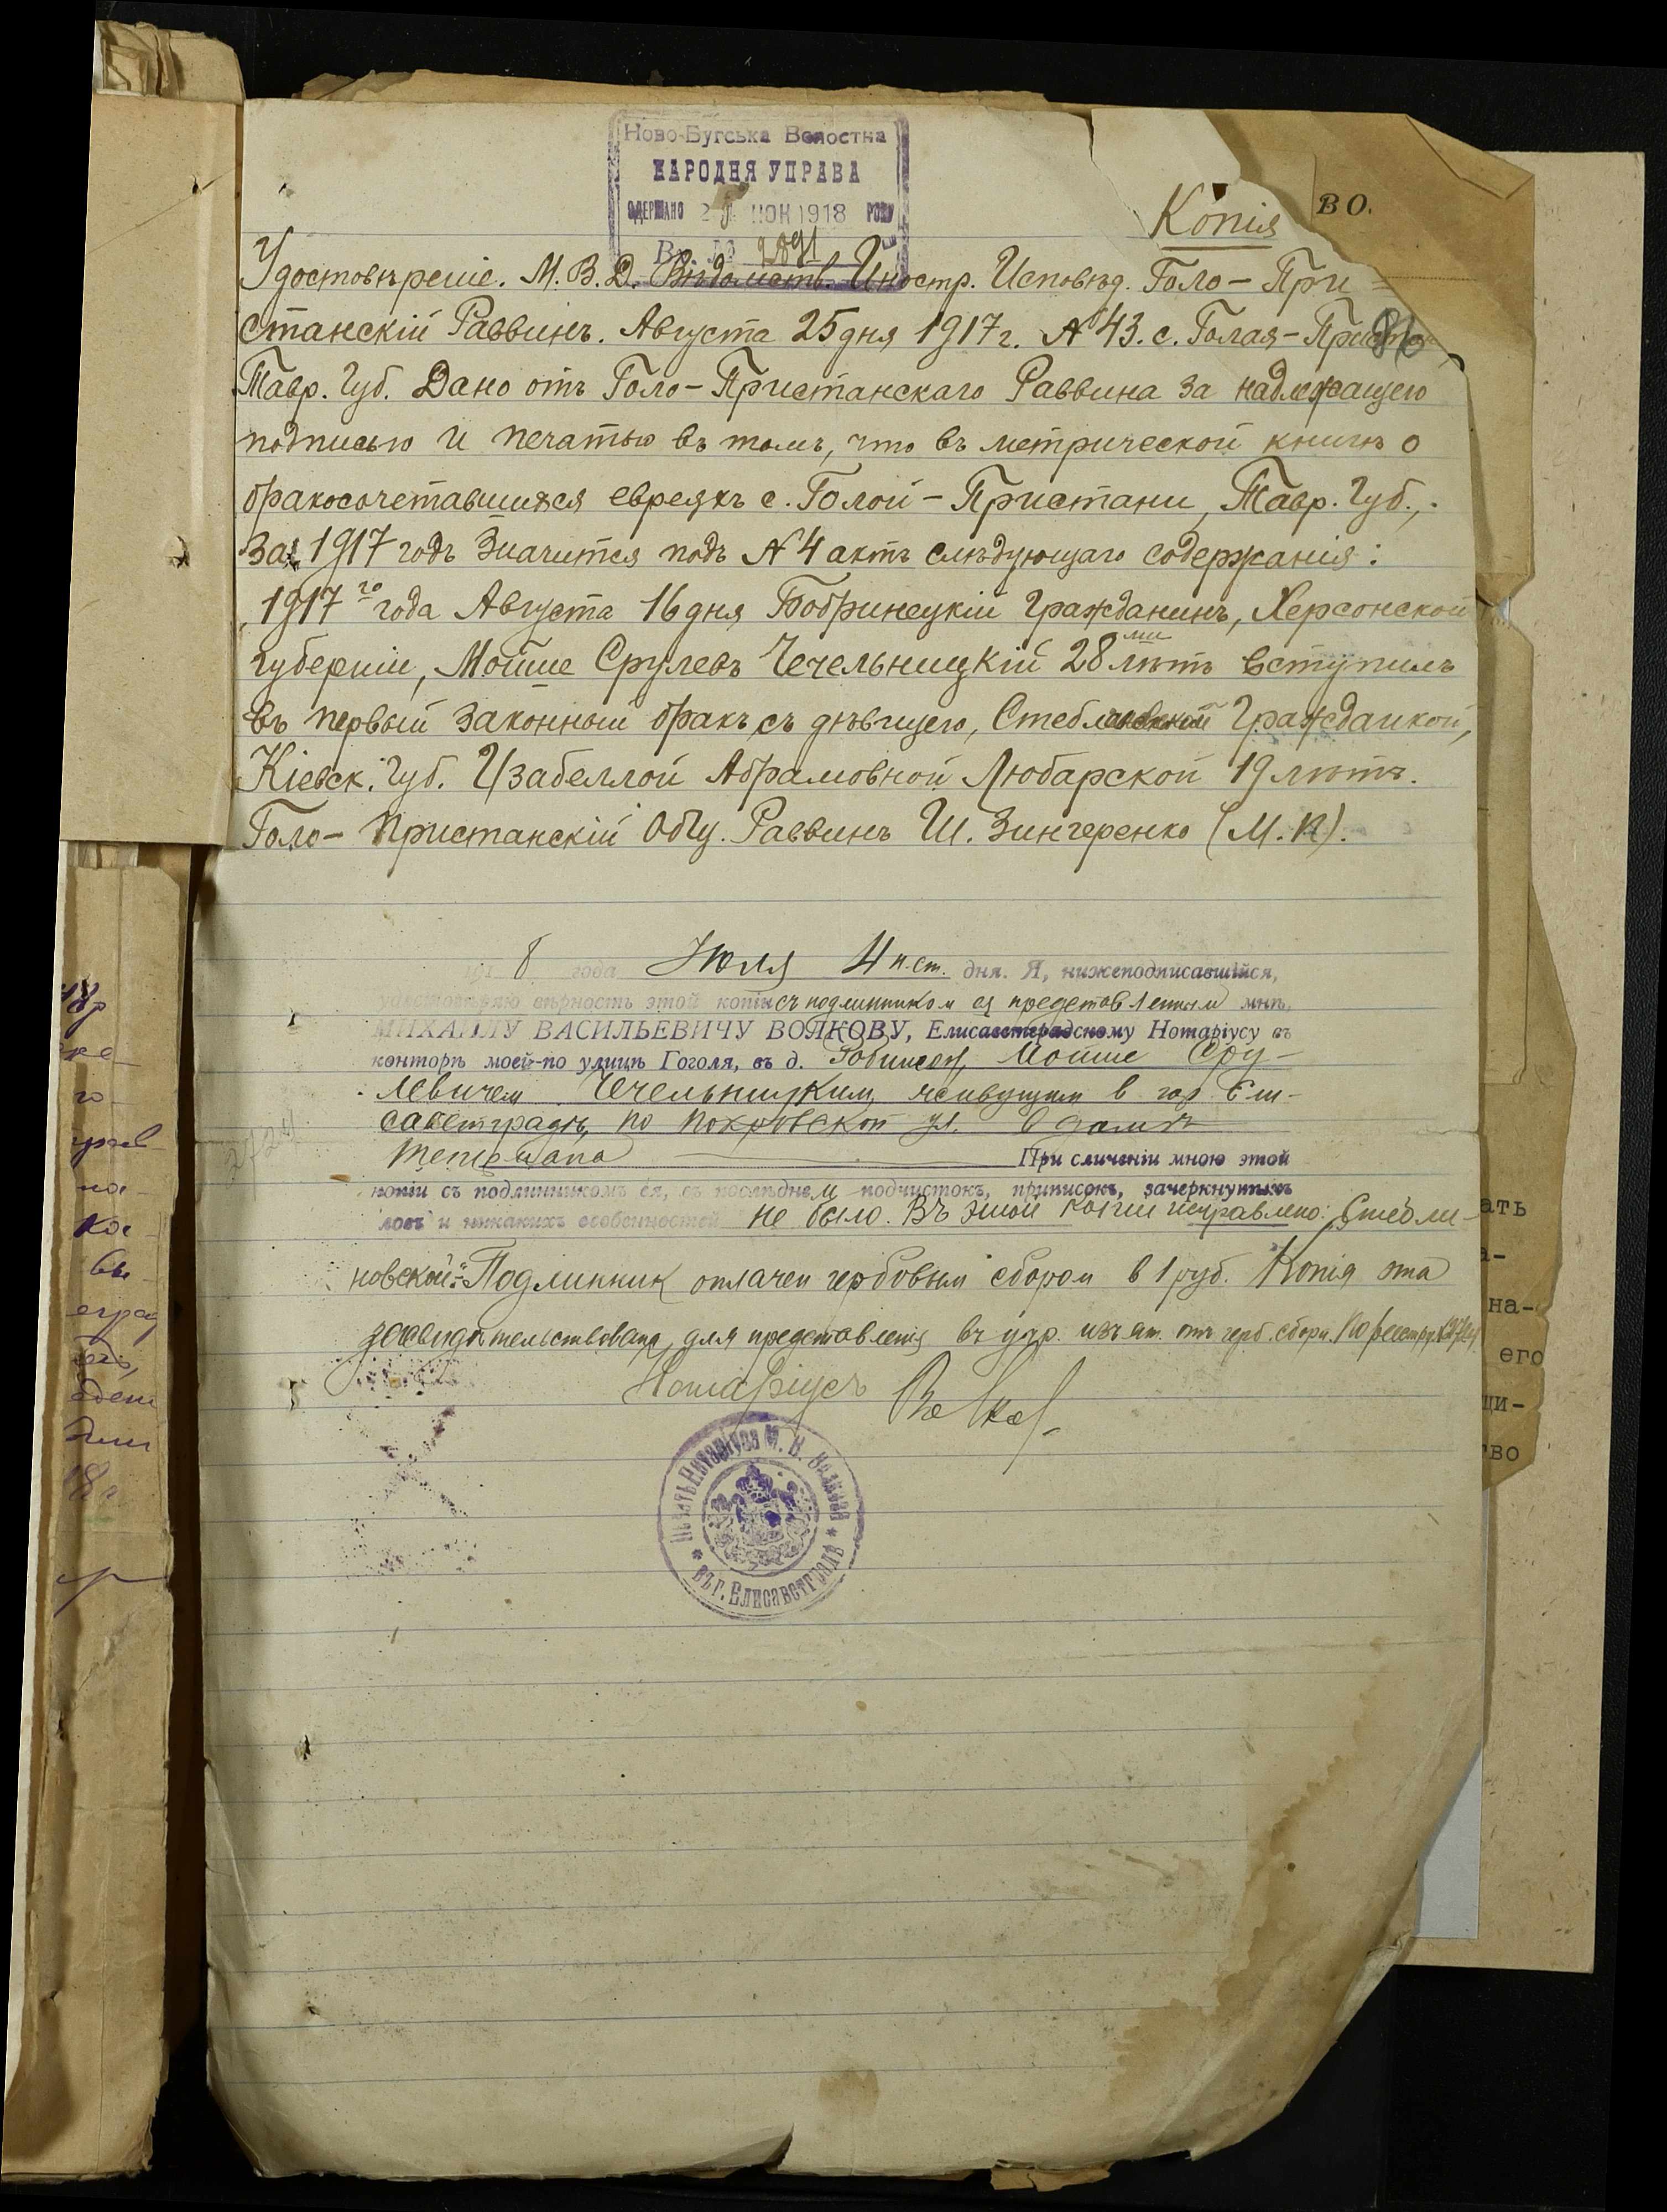 Ново-Бугська Волостна
НАРОДНЯ УПРАВА
ОДЕРЖАНО 2 ІЮН 1918 РОКУ
Вх. № 2091
Копія
ВО.
Удостовѣреніе. М.В.Д. Вѣдомств. Иностр. Исповѣд. Голо-При-
станскій Раввинъ. Августа 25 дня 1917 г. № 43. с. Голая-Пристань
Тавр. Губ. Дано отъ Голо-Пристанскаго Раввина за надлежащею
подписью и печатью въ томъ, что въ метрической книгѣ о
бракосочетавшихся евреяхъ с. Голой-Пристани, Тавр. Губ.,
за 1917 годъ значится подъ № 4 актъ слѣдующаго содержанія:
1917го года Августа 16 дня Бобринецкій гражданинъ, Херсонской
губерніи, Мойше Срулевъ Чечельницкій 28ми лѣтъ вступилъ
въ первый законный бракъ съ дѣвицею, Стеблиновской гражданкой,
Кіевск. Губ. Изабеллой Абрамовной Любарской 19 лѣтъ.
Голо-Пристанскій Общ. Раввинъ Ш. Зингеренко (М.П).
191 8 года Июля 4 н.ст. дня. Я, нижеподписавшійся,
удостовѣряю вѣрность этой копіи съ подлинником ея представленным мнѣ,
МИХАИЛУ ВАСИЛЬЕВИЧУ ВОЛКОВУ, Елисаветградскому Нотаріусу въ
конторѣ моей по улицѣ Гоголя, въ д. Мойше Сру-
левичем Чечельницким, живущим в гор. Ели-
саветградѣ, по Покровской ул. в домѣ
При сличеніи мною этой
копіи съ подлинникомъ ея, въ послѣднем подчистокъ, приписокъ, зачеркнутыхъ
словъ и никакихъ особенностей не было. Въ этой копіи исправлено: "Стебли-
новской". Подлинник оплачен гербовым сбором в 1 руб. Копія эта
засвидѣтельствована для представленія въ учр. изъят. отъ герб. сбора. По реестру №
Нотаріусъ Волков
Печать Нотаріуса М. В. Волкова
въ г. Елисаветградѣ
2724
ать
а-
на-
его
щи-
тво